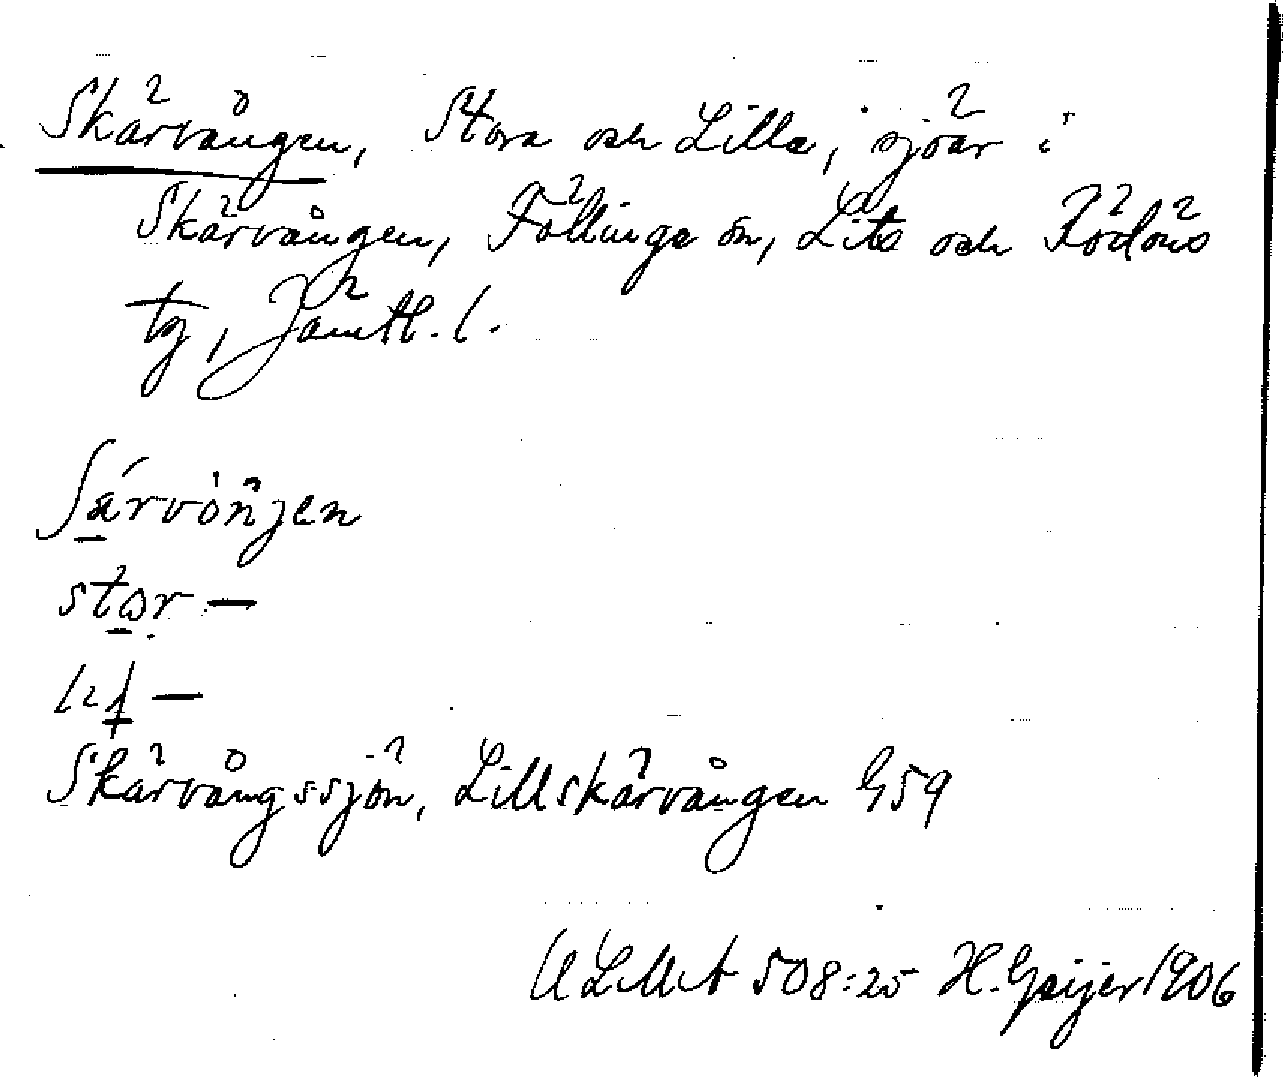 Skärvången, Stora och Lilla, sjöar i
Skärvången, Föllinge sn, Lits och Rödöns
tg, Jämtl. l.
ʃárvòn̈jen
stor —
—
Skärvångssjön, Lillskärvången G59
ULMA 508:25 H. Geijer 1906